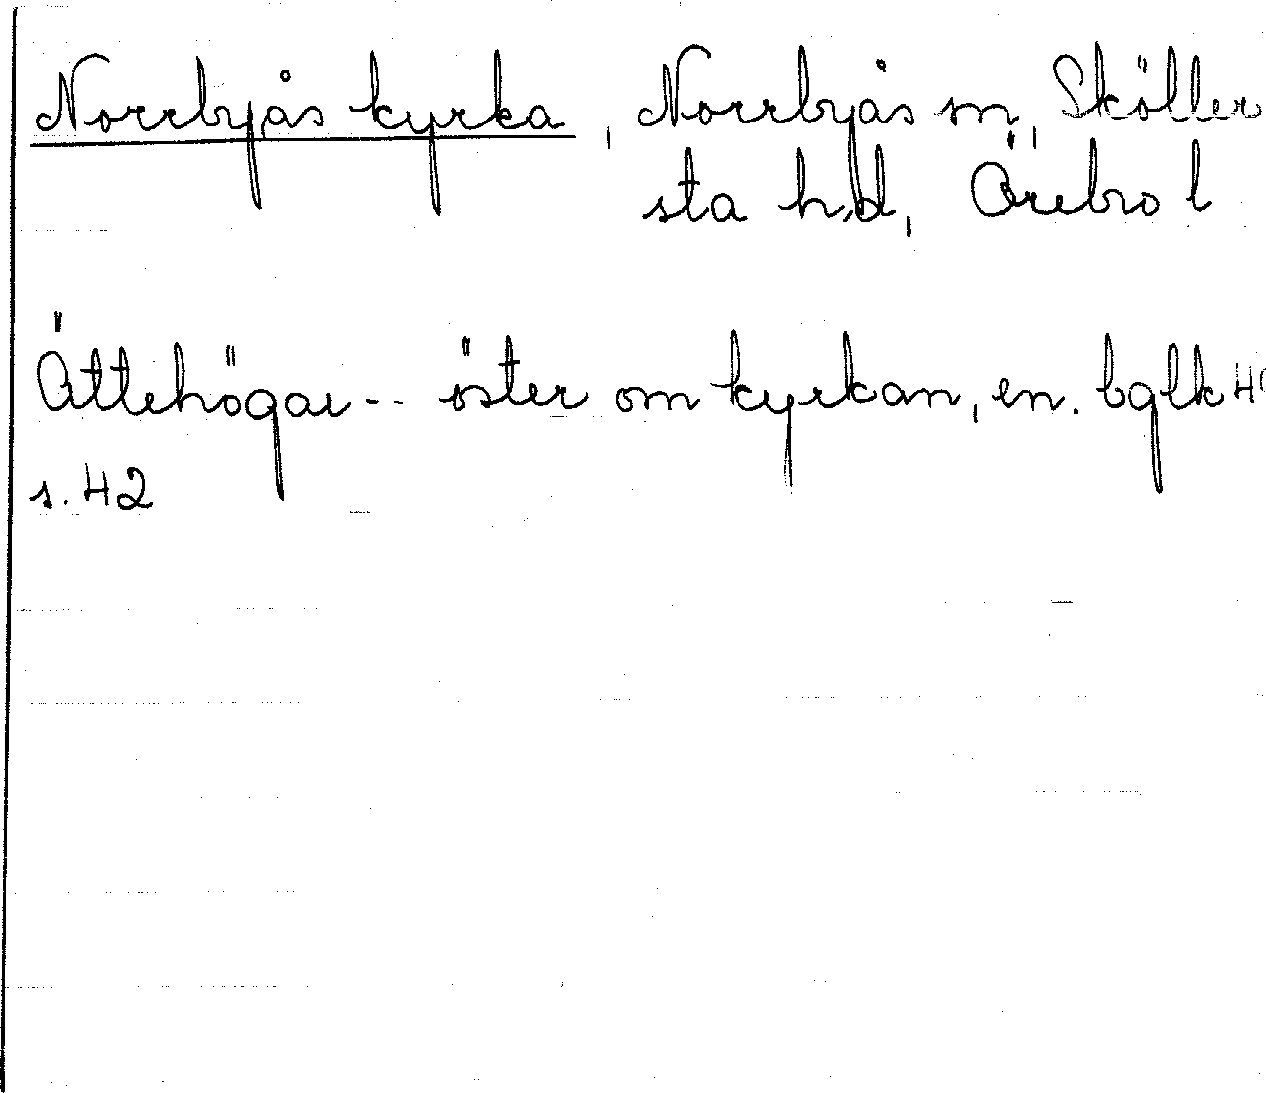 Norrbyås kyrka, Norrbyås sn, Sköller
sta hd, Örebro l
Ättehögar -- öster om kyrkan, en. bglk
s. 42